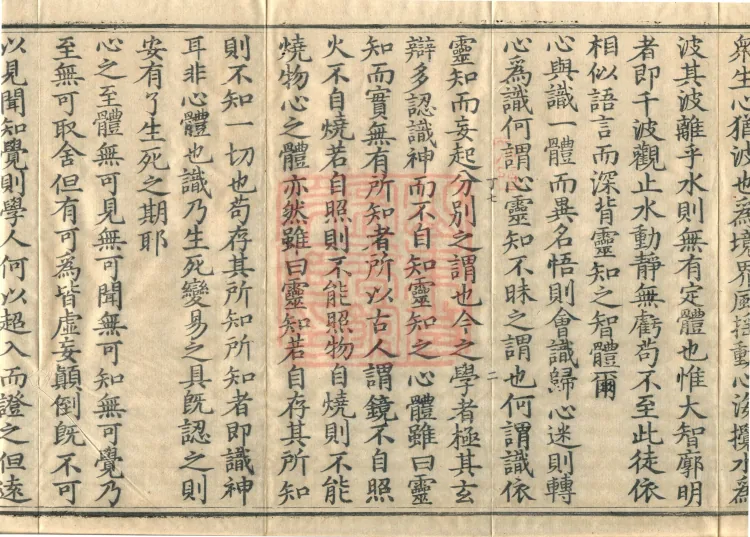 衆生心猶波也為境界風揺動心海攪水為
波其波離乎水則無有定體也惟大智廓明
者即千波觀止水動靜無虧苟不至此徒依
相似語言而深背靈知之智體爾
心與識一體而異名悟則會識歸心迷則轉
心為識何謂心靈知不昧之謂也何謂識依
丁七
二
靈知而妄起分別之謂也今之學者極其玄
辯多認識神而不自知靈知之心體雖曰靈
知而實無有所知者所以古人謂鏡不自照
火不自燒若自照則不能照物自燒則不能
燒物心之體亦然雖曰靈知若自存其所知
則不知一切也苟存其所知所知者即識神
耳非心體也識乃生死變易之具既認之則
安有了生死之期耶
心之至體無可見無可聞無可知無可覺乃
至無可取舍但有可為皆虛妄顛倒既不可
以見聞知覺則學人何以超入而證之但遠